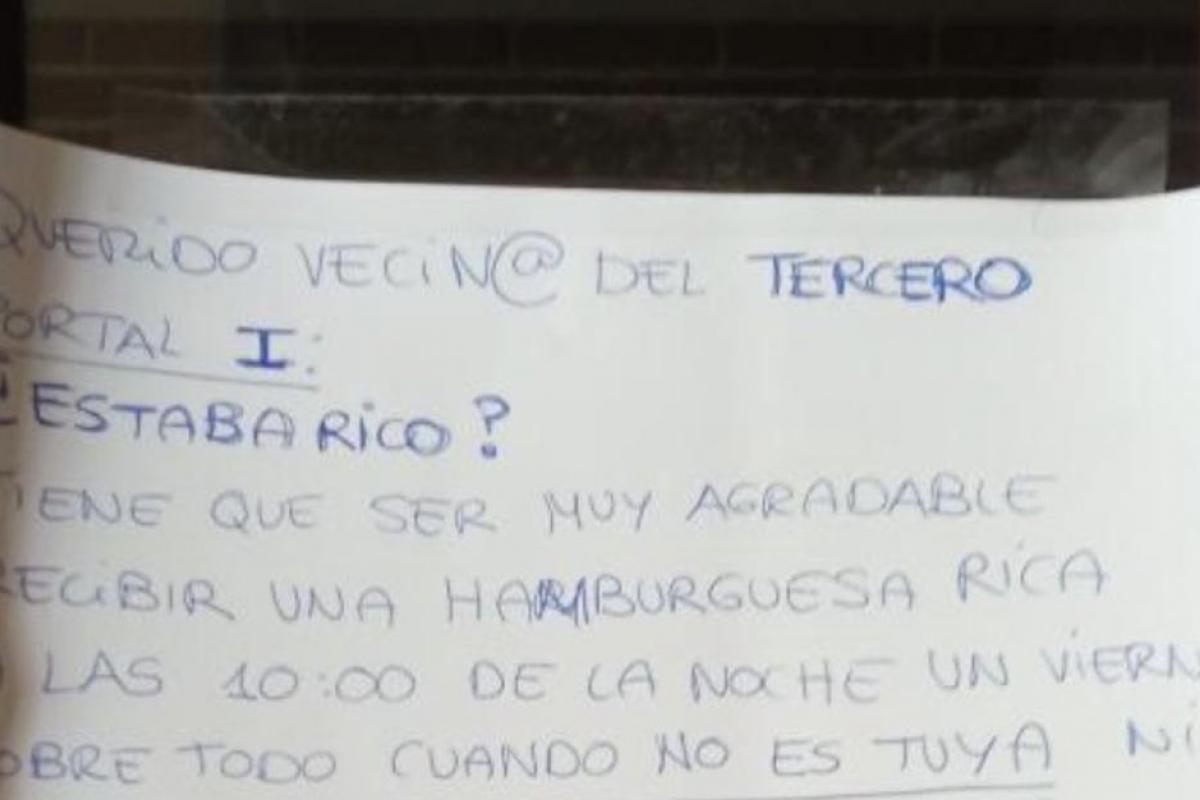 QUERIDO VECIN@ DEL TERCERO
PORTAL I:
¿ESTABA RICO?
TIENE QUE SER MUY AGRADABLE
RECIBIR UNA HAMBURGUESA RICA
LAS 10:00 DE LA NOCHE UN VIERN
OBRE TODO CUANDO NO ES TUYA NI